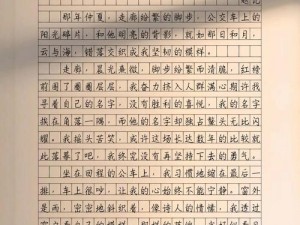 那年仲夏，走廊纷繁的脚步，公交车上的
阳光碎片，和他明亮的背影，就如那日和月，
云与海，错落交织成我坚韧的模样。
走廊，晨光熹微，脚步纷繁而清脆，红榜
前围了圈圈层层，我奋力挤入人群满心期许找
寻着自己的名字，没有胜利的喜悦，我的名字
挨在角落一隅，而他的名字却独占鳌头无比闪
耀。我摇头苦笑，或许这场长达数年的比较就
此落幕了吧，我终究没有再坚持下去的勇气。
坐在回程的公车上，我习惯地缩在最后一
排，公车上很吵，让我的心始终不能宁静。窗外
是雨，密密地斜织着，像诗人的情愫，我透过